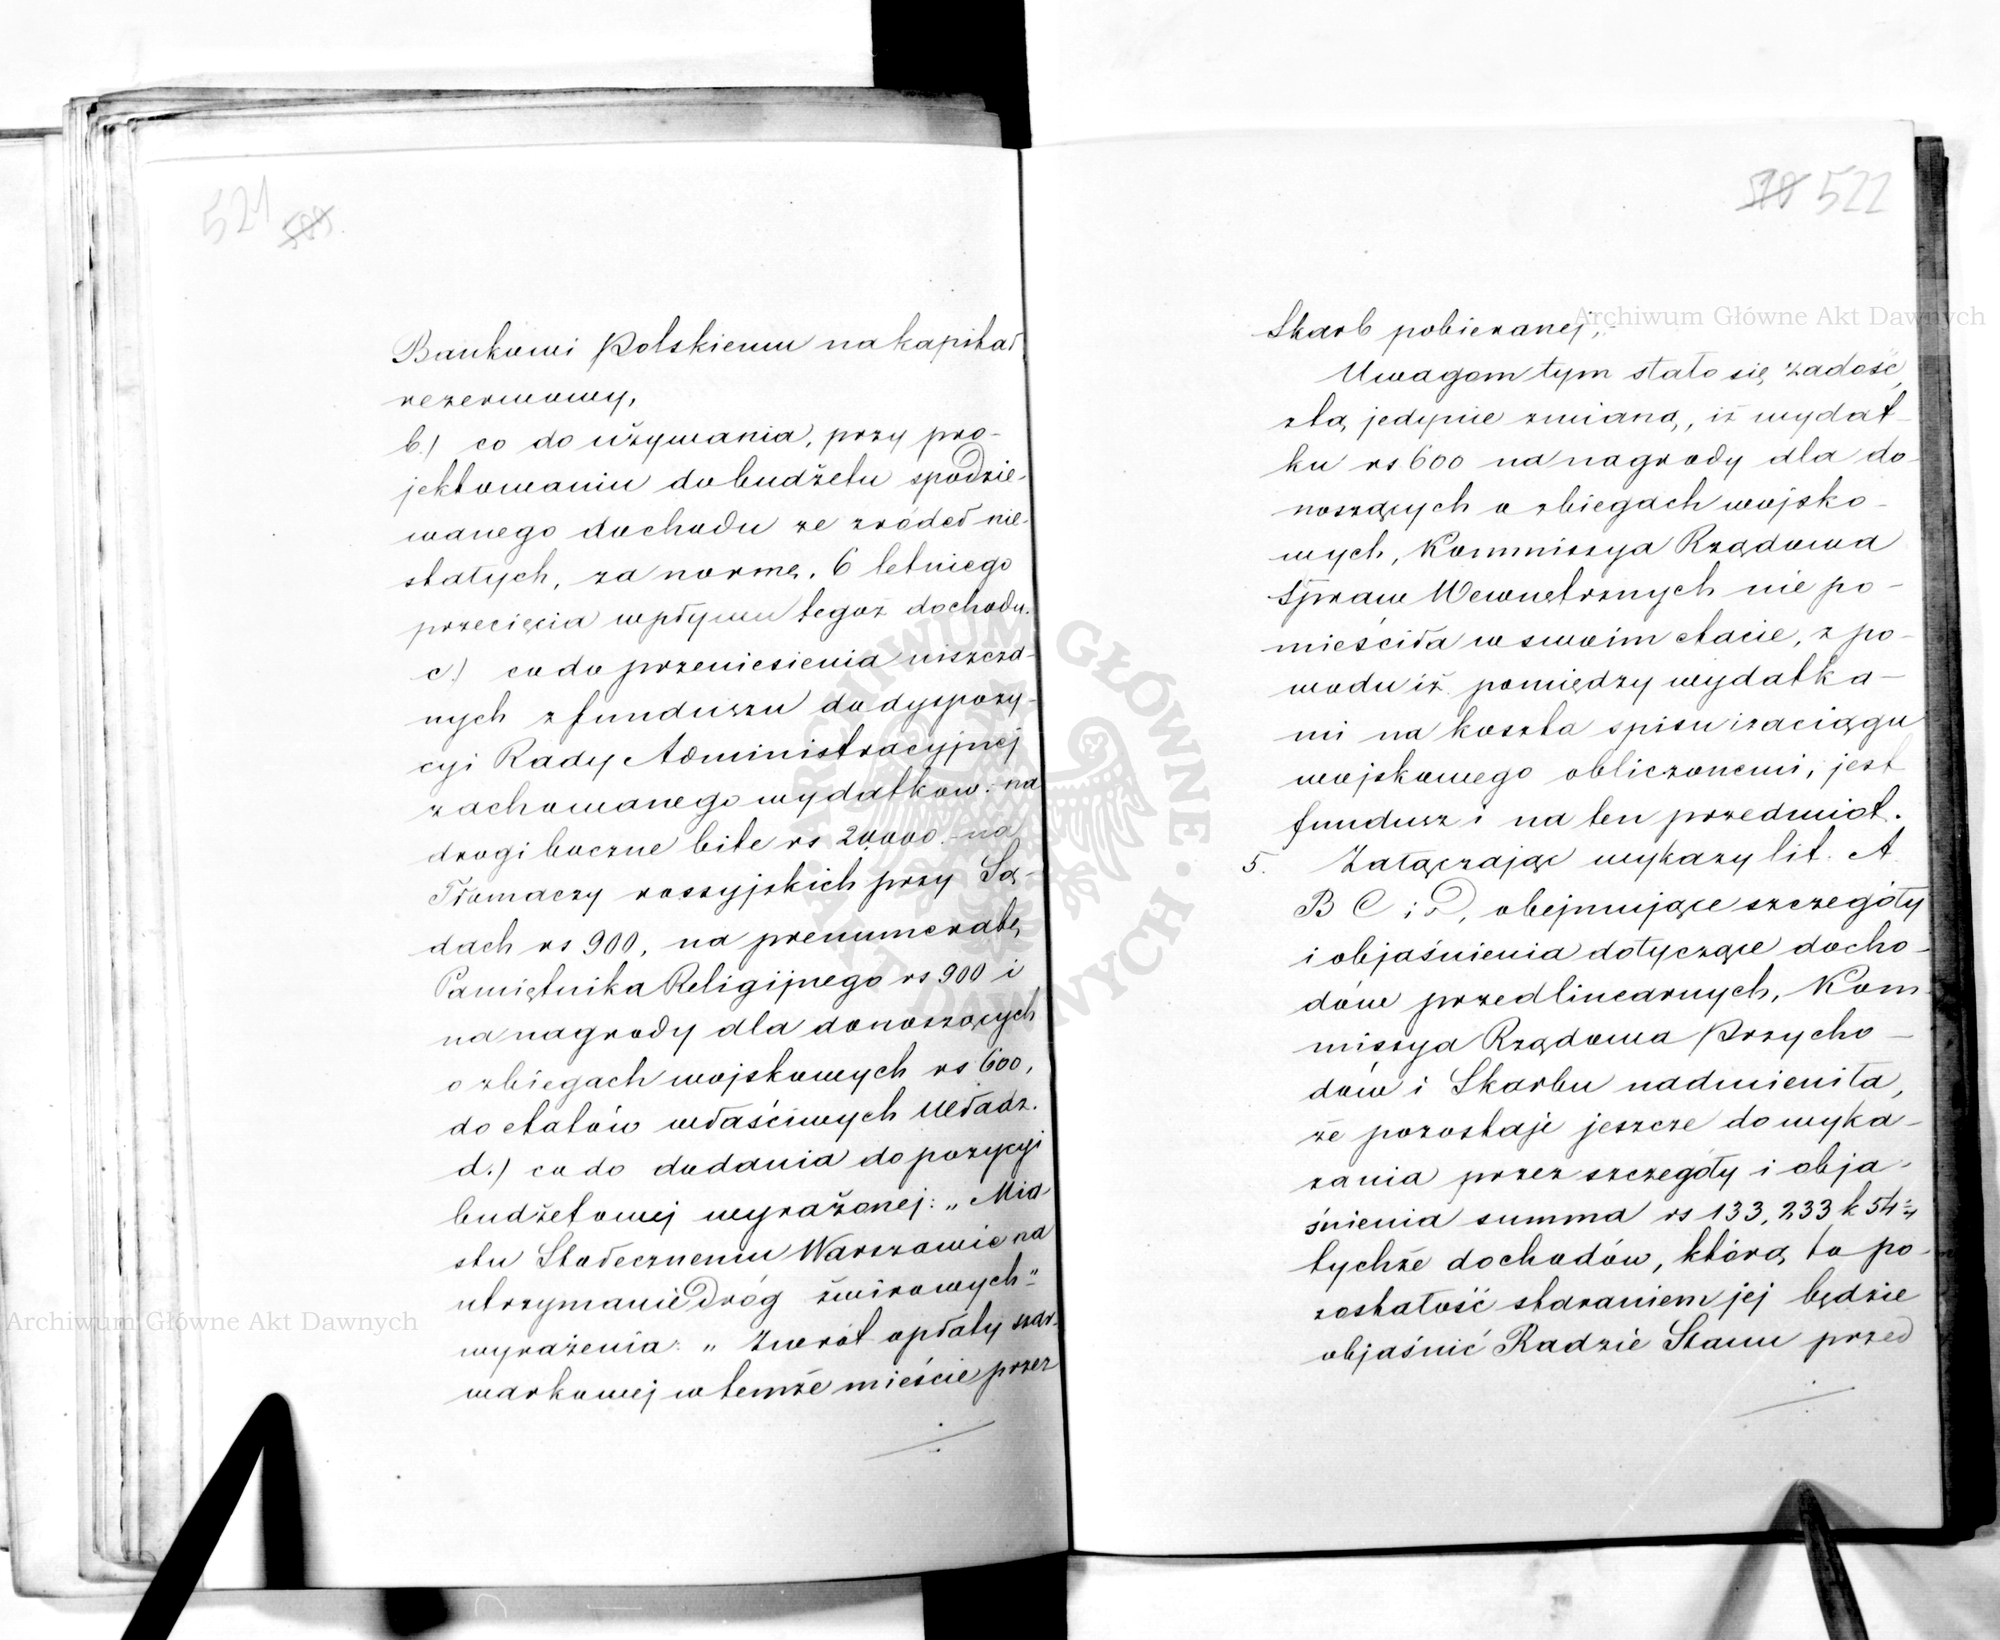 521 509
Bankowi Polskiemu na kapitał
rezerwowy,
b.) co do używania, przy pro-
jektowaniu do budżetu spodzie-
wanego dochodu ze źródeł nie-
stałych, za normę, 6 letniego
przecięcia wpływu tegoż dochodu.
c.) co do przeniesienia uiszcza-
nych z funduszu do dyspozy-
cyi Rady Administracyjnej
zachowanego wydatków: na
drogi boczne bite rs 20,000. na
Tłomaczy rossyjskich przy Są-
dach rs 900, na prenumeratę
Pamiętnika Religijnego rs 900 i
na nagrody dla donoszących
o zbiegach wojskowych rs 600,
do etatów właściwych Władz.
d.) co do dodania do pozycyi
budżetowej wyrażonej: „Mia-
stu Stołecznemu Warszawie na
utrzymanie dróg żwirowych"
wyrażenia: „Zwrót opłaty szar-
warkowej w temże mieście przez
510 522
Skarb pobieranej;
Uwagom tym stało się zadość,
z tą jedynie zmianą, iż wydat-
ku rs 600 na nagrody dla do-
noszących o zbiegach wojsko-
wych, Kommissya Rządowa
Spraw Wewnętrznych nie po-
mieściła w swoim etacie, z po-
wodu iż pomiędzy wydatka-
mi na koszta spisu i zaciągu
wojskowego obliczonemi, jest
fundusz i na ten przedmiot.
5. Załączając wykazy lit. A
B C i D, obejmujące szczegóły
i objaśnienia dotyczące docho-
dów przedlinearnych, Kom-
missya Rządowa Przycho-
dów i Skarbu nadmieniła,
że pozostaje jeszcze do wyka-
zania przez szczegóły i obja-
śnienia summa rs 133,233 k 54
tychże dochodów, którą to po-
zostałość staraniem jej będzie
objaśnić Radzie Stanu przed
Archiwum Główne Akt Dawnych
Archiwum Główne Akt Dawnych
ARCHIWUM GŁÓWNE AKT DAWNYCH